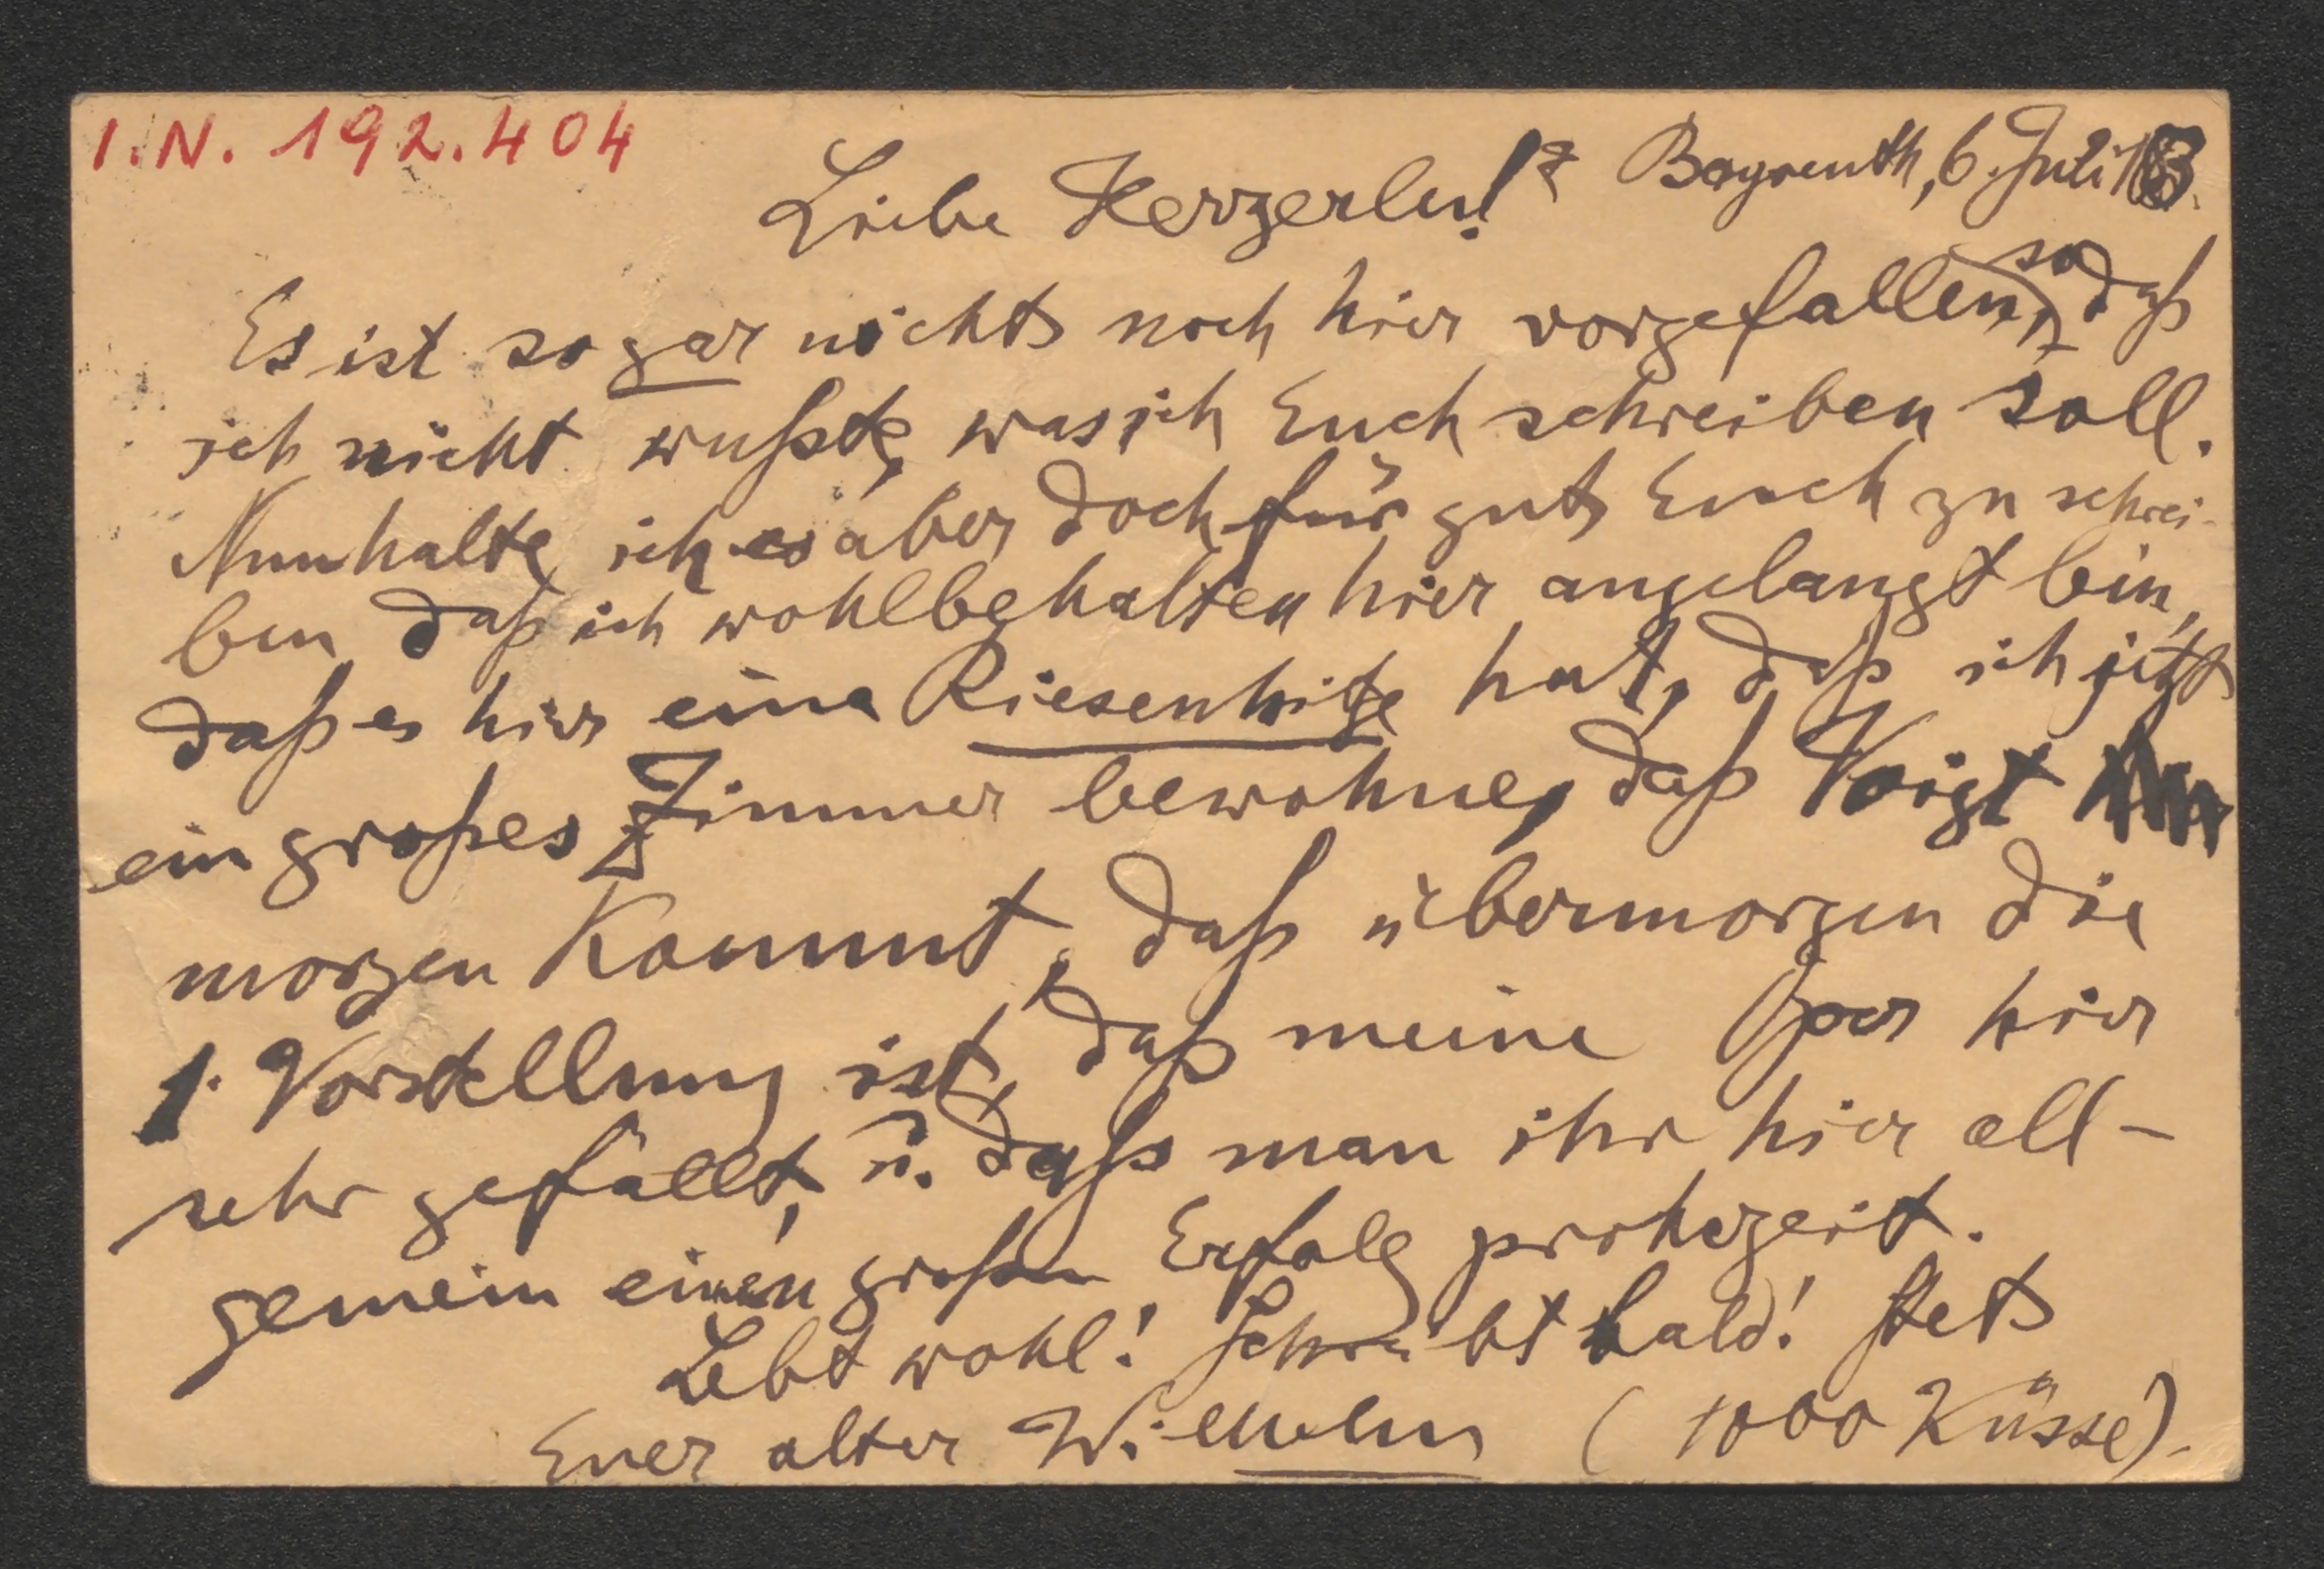 I.N. 192.404
Bayreuth, 6. Juli 18
Liebe Herzerln!
so
Es ist so gar nichts noch hier vorgefallen, daß
ich nicht wußte, was ich Euch schreiben soll.
Nun halte ich es aber doch für gut Euch zu schrei-
ben daß ich wohlbehalten hier angelangt bin,
daß es hier eine Riesenhitze hat, daß ich jetzt
ein großes Zimmer bewohne, daß Voigt
morgen kommt, daß übermorgen die
1. Vorstellung ist, daß meine Oper hier
sehr gefällt, u. daß man ihr hier all-
gemein einen großen Erfolg prohezeit.
Lebt wohl! Schreibt bald! Stets
Euer alter Wilhelm (1000 Küsse).